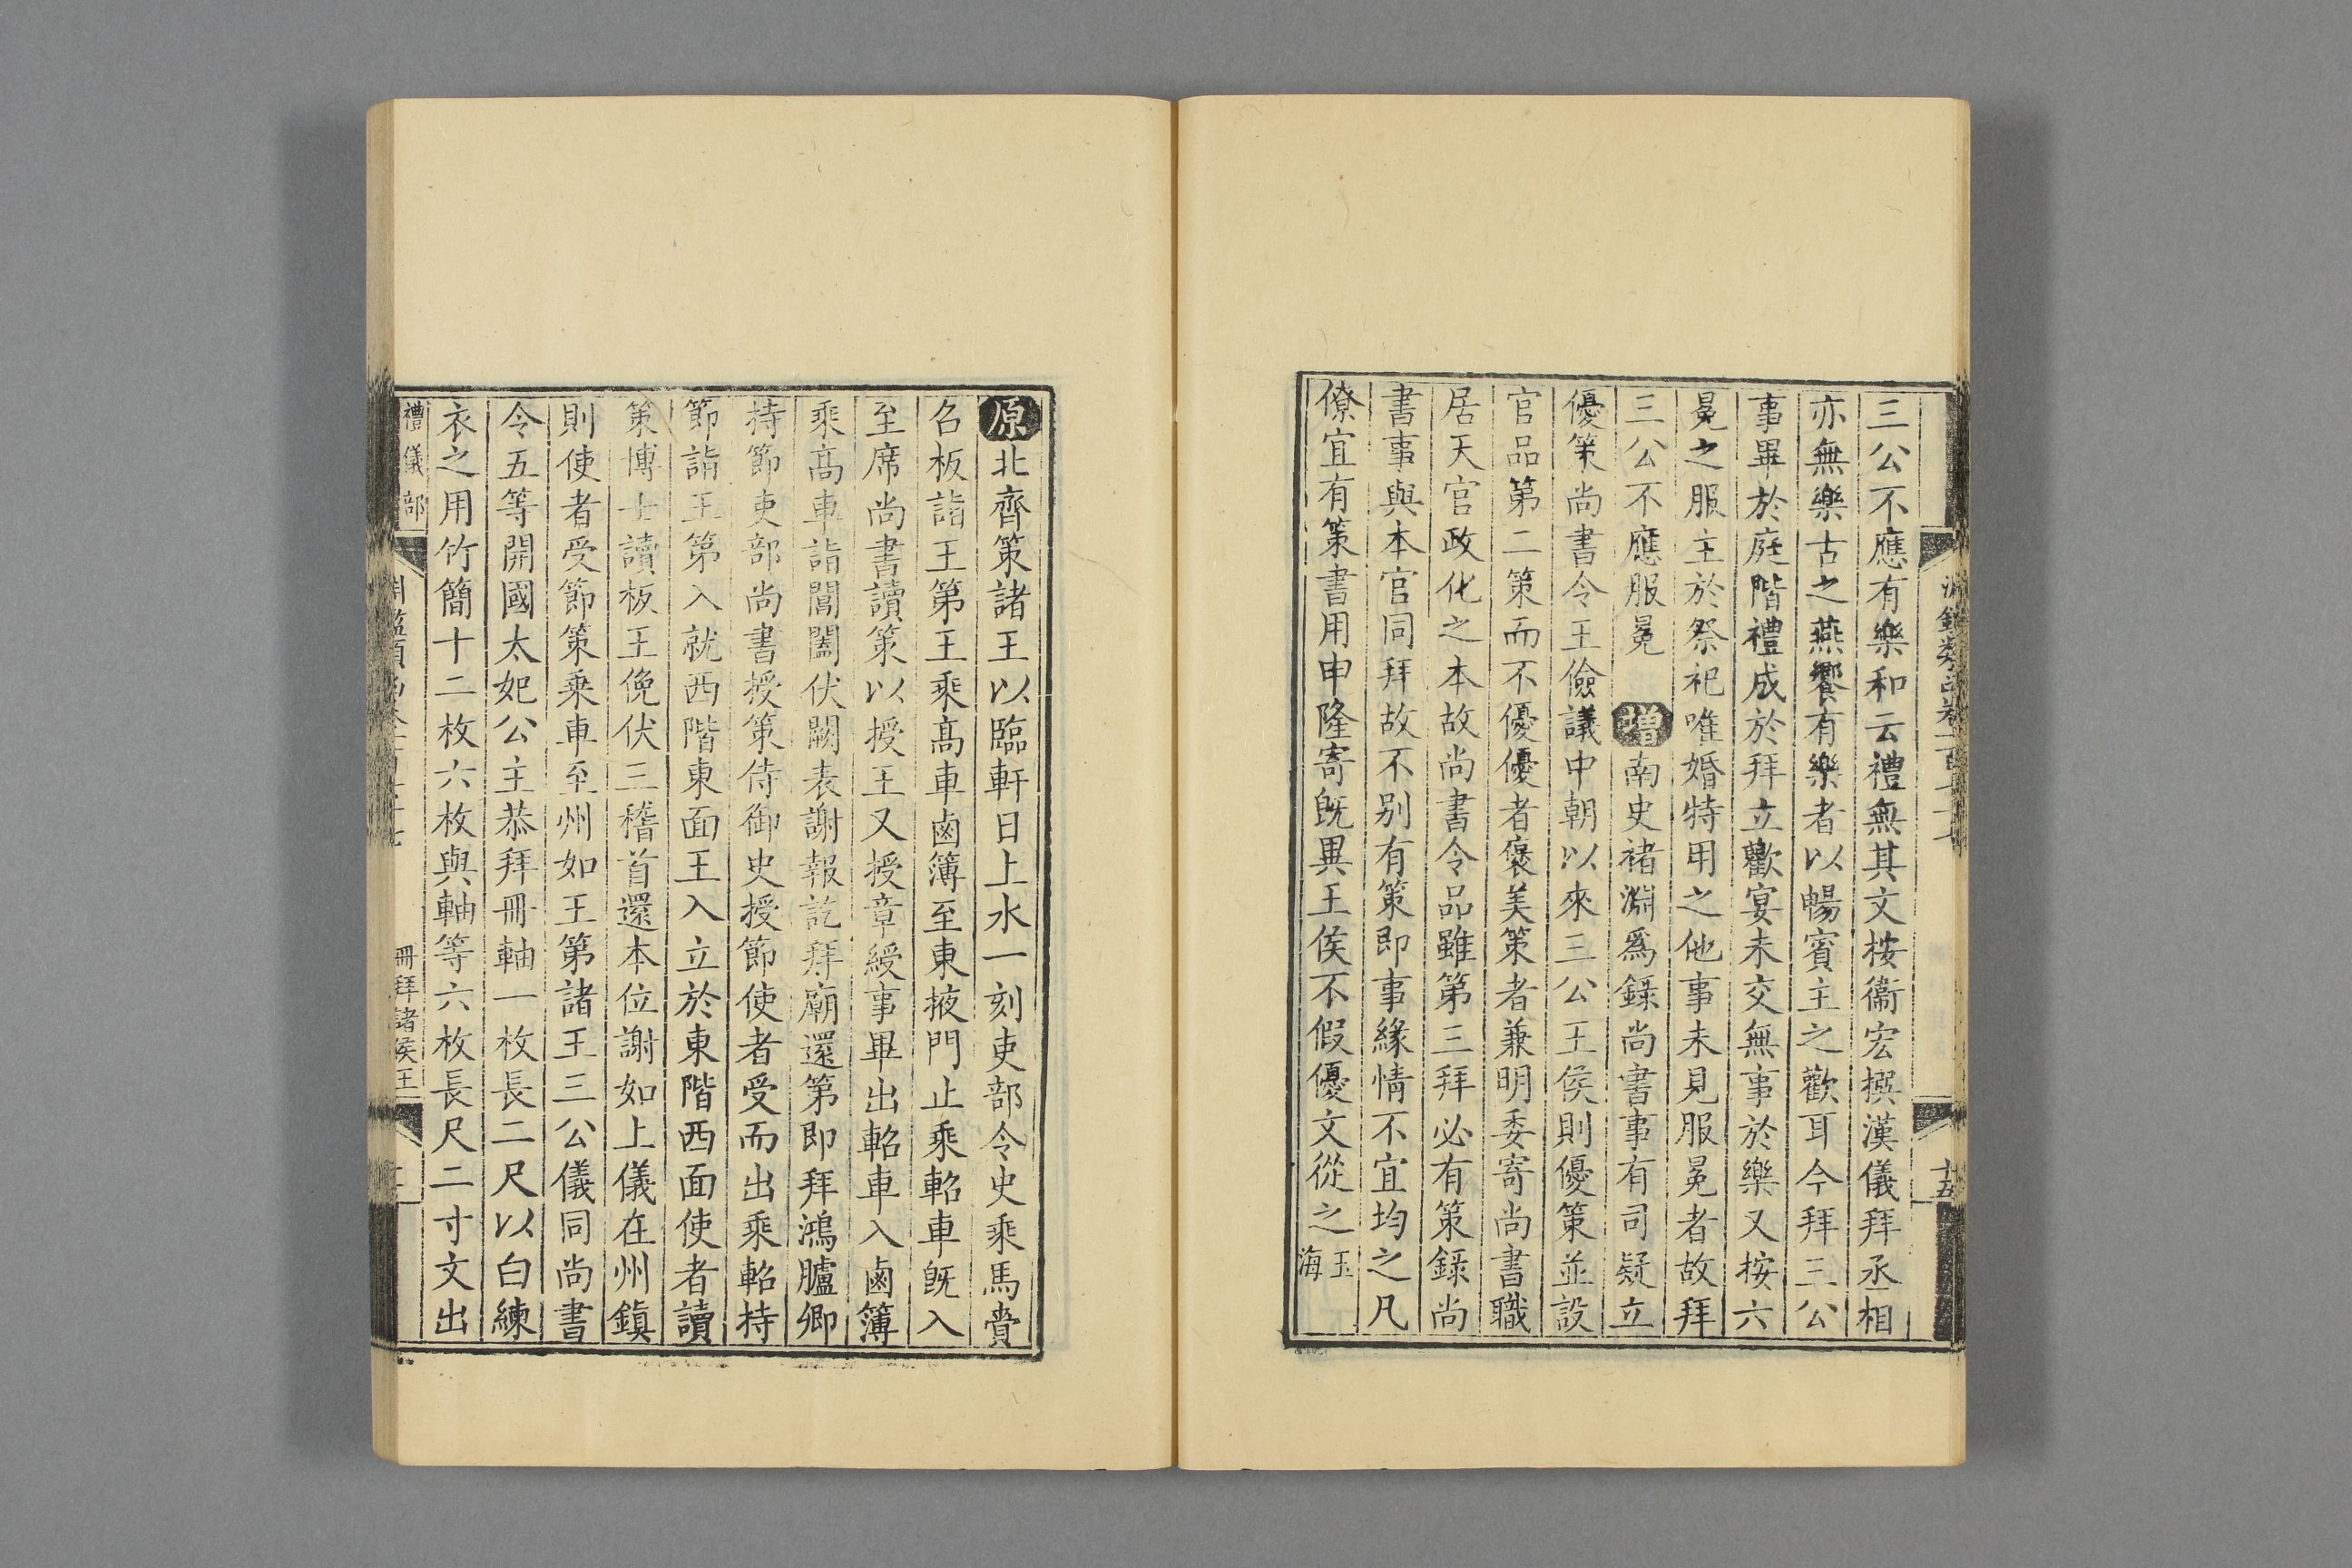 三公不應有樂和云禮無其文按衞宏撰漢儀拜丞相
亦無樂古之燕饗有樂者以暢賓主之歡耳今拜三公
事畢於庭階禮成於拜立歡宴未交無事於樂又按六
冕之服主於祭祀唯婚特用之他事未見服冕者故拜
三公不應服冕　增南史褚淵爲錄尚書事有司疑立
優策尚書令王儉議中朝以來三公王侯則優策並設
官品第二策而不優優者襃美策者兼明委寄尚書職
居天官政化之本故尚書令品雖第三拜必有策錄尚
書事與本官同拜故不别有策即事緣情不宜均之凡
僚宜有策書用申隆寄旣異王侯不假優文從之玉海
十五
原北齊策諸王以臨軒日上水一刻吏部令史乘馬賫
名板詣王第王乘髙車鹵簿至東掖門止乘軺車旣入
至席尚書讀策以授王又授章綬事畢出軺車入鹵簿
乘髙車詣閶闔伏闕表謝報訖拜廟還第即拜鴻臚卿
持節吏部尚書授策侍御史授節使者受而出乘軺持
節詣王第入就西階東面王入立於東階西面使者讀
策博士讀板王俛伏三稽首還本位謝如上儀在州鎭
則使者受節策乗車至州如王第諸王三公儀同尚書
令五等開國太妃公主恭拜冊軸一枚長二尺以白練
衣之用竹簡十二枚六枚與軸等六枚長尺二寸文出
禮儀部
冊拜諸侯王